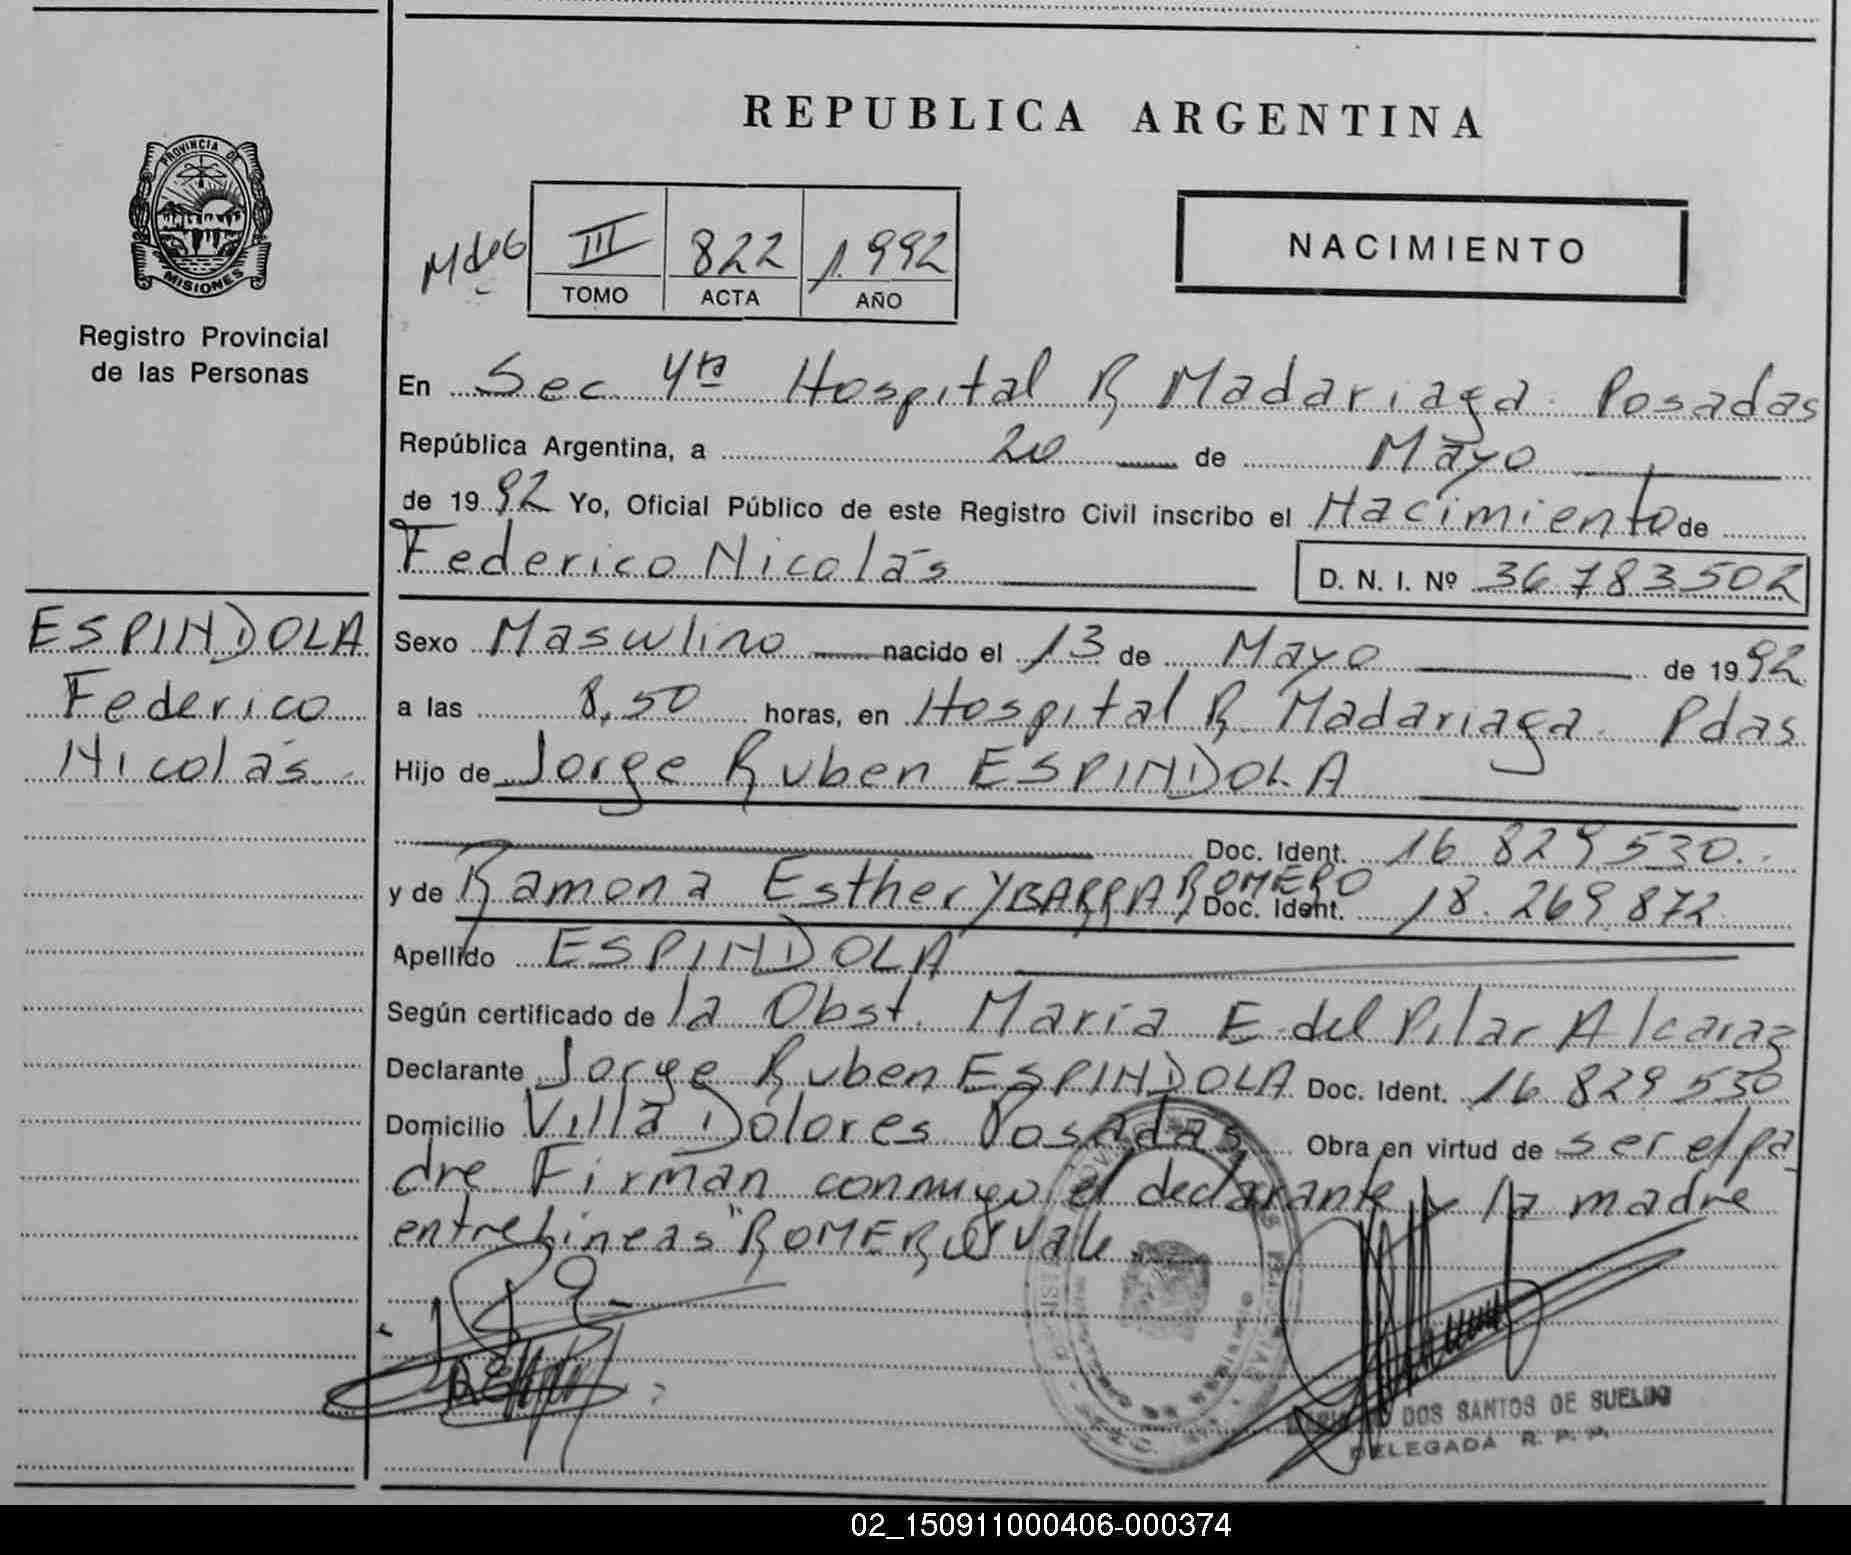 REPUBLICA ARGENTINA
PROVINCIA DE
MISIONES
Registro Provincial
de las Personas
III 822 1.992
TOMO ACTA AÑO
NACIMIENTO
En Sec 4ta Hospital R Madariaga. Posadas
República Argentina, a 20 de Mayo
de 1992 Yo, Oficial Público de este Registro Civil inscribo el Nacimiento de
Federico Nicolás
D. N. I. Nº 36 783502
ESPINDOLA
Federico
Nicolás.
Sexo Masculino nacido el 13 de Mayo de 1992
a las 8,50 horas, en Hospital R. Madariaga. Pdas
Hijo de Jorge Ruben ESPINDOLA
Doc. Ident. 16 829 530.
y de Ramona Esther YBARRA ROMERO Doc. Ident. 18.269 872
Apellido ESPINDOLA
Según certificado de la Obst. María E del Pilar Alcaraz
Declarante Jorge Ruben ESPINDOLA Doc. Ident. 16 829 530
Domicilio Villa Dolores Posadas Obra en virtud de ser el pa
dre Firman conmigo el declarante y la madre
entrelineas "ROMERO" Vale
DOS SANTOS DE SUELDO
DELEGADA R. P. P.
02_150911000406-000374